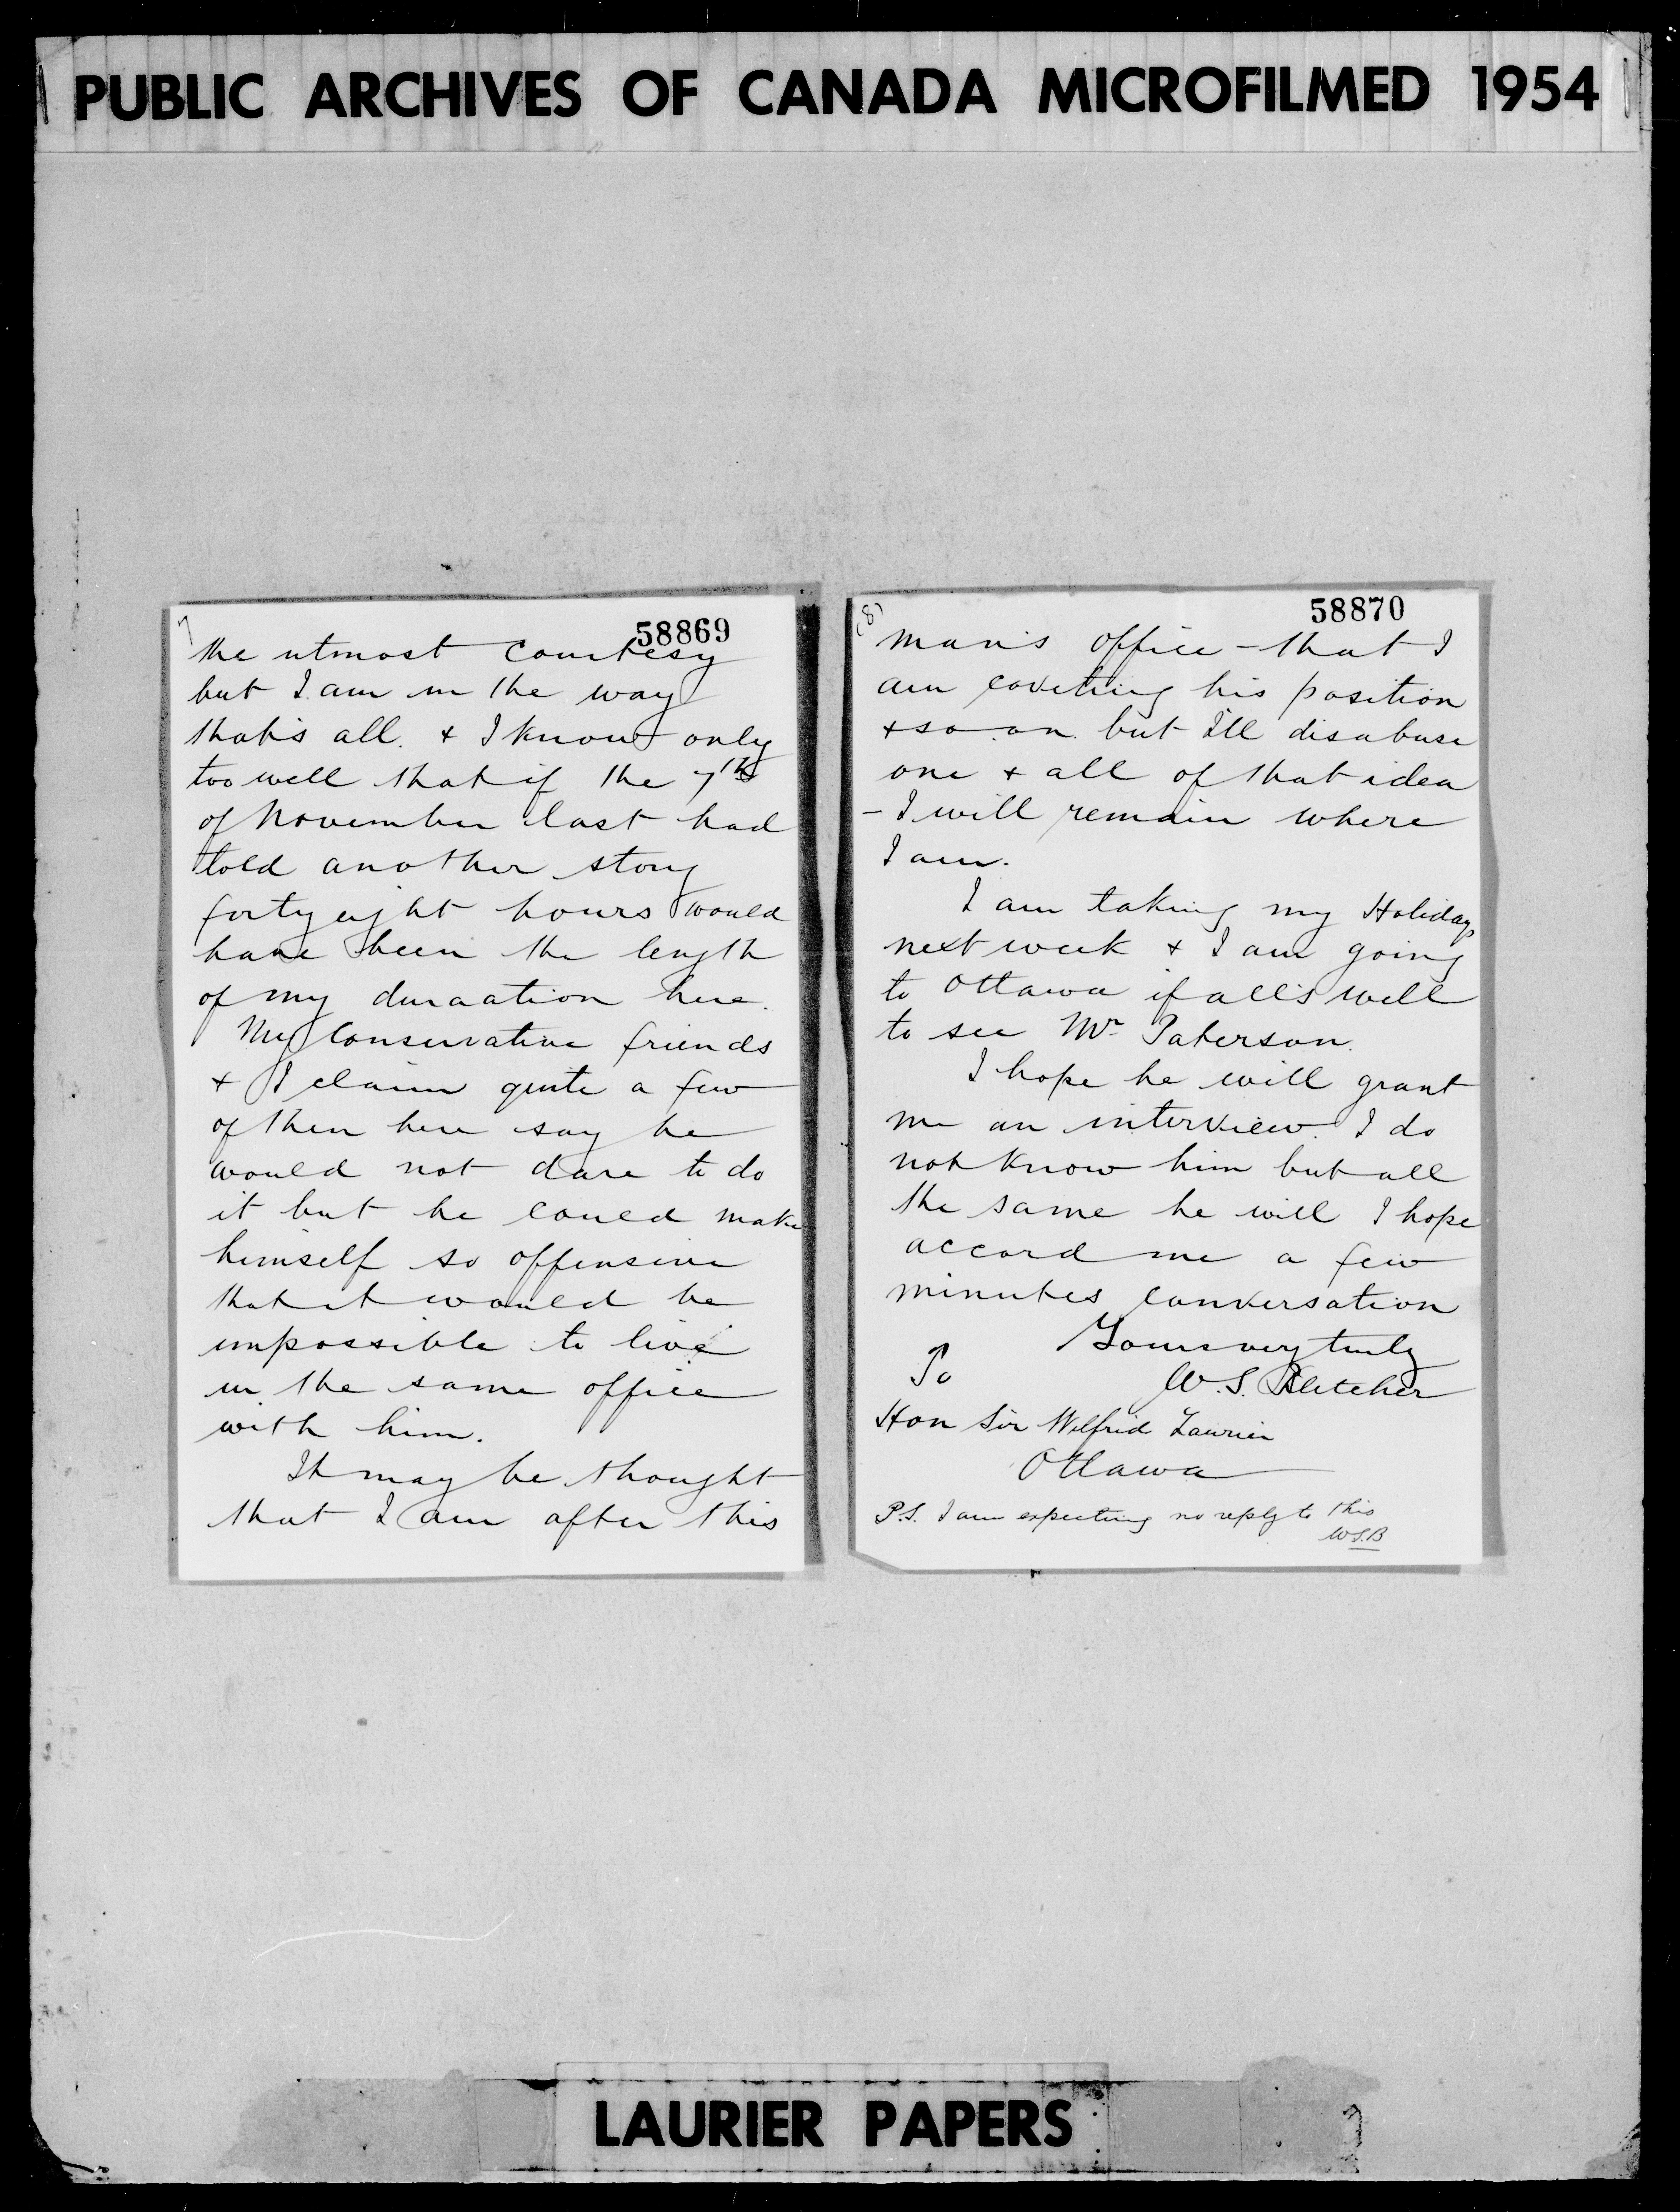 PUBLIC ARCHIVES OF CANADA MICROFILMED 1954
7
58869
the utmost courtesy
but I am in the way
that's all. & I know only
too well that if the 7th
of November last had
told another story
forty eight hours would
have been the length
of my duraation here.
My Conservative friends
& I claim quite a few
of then here say he
would not dare to do
it but he could make
himself so offensive
that it would be
impossible to live
in the same office
with him.
It may be thought
that I am after this
(8)
58870
man's office - that I
am coveting his position
& so on but I'll disabuse
one & all of that idea
- I will remain where
I am.
I am taking my Holidays
next week & I am going
to Ottawa if all's well
to see Mr Paterson.
I hope he will grant
me an interview. I do
not know him but all
the same he will I hope
accord me a few
minutes conversation
Yours very truly
To
W. S. Bletcher
Hon Sir Wilfrid Laurier
Ottawa
P.S. I am expecting no reply to this
W.S.B
LAURIER PAPERS